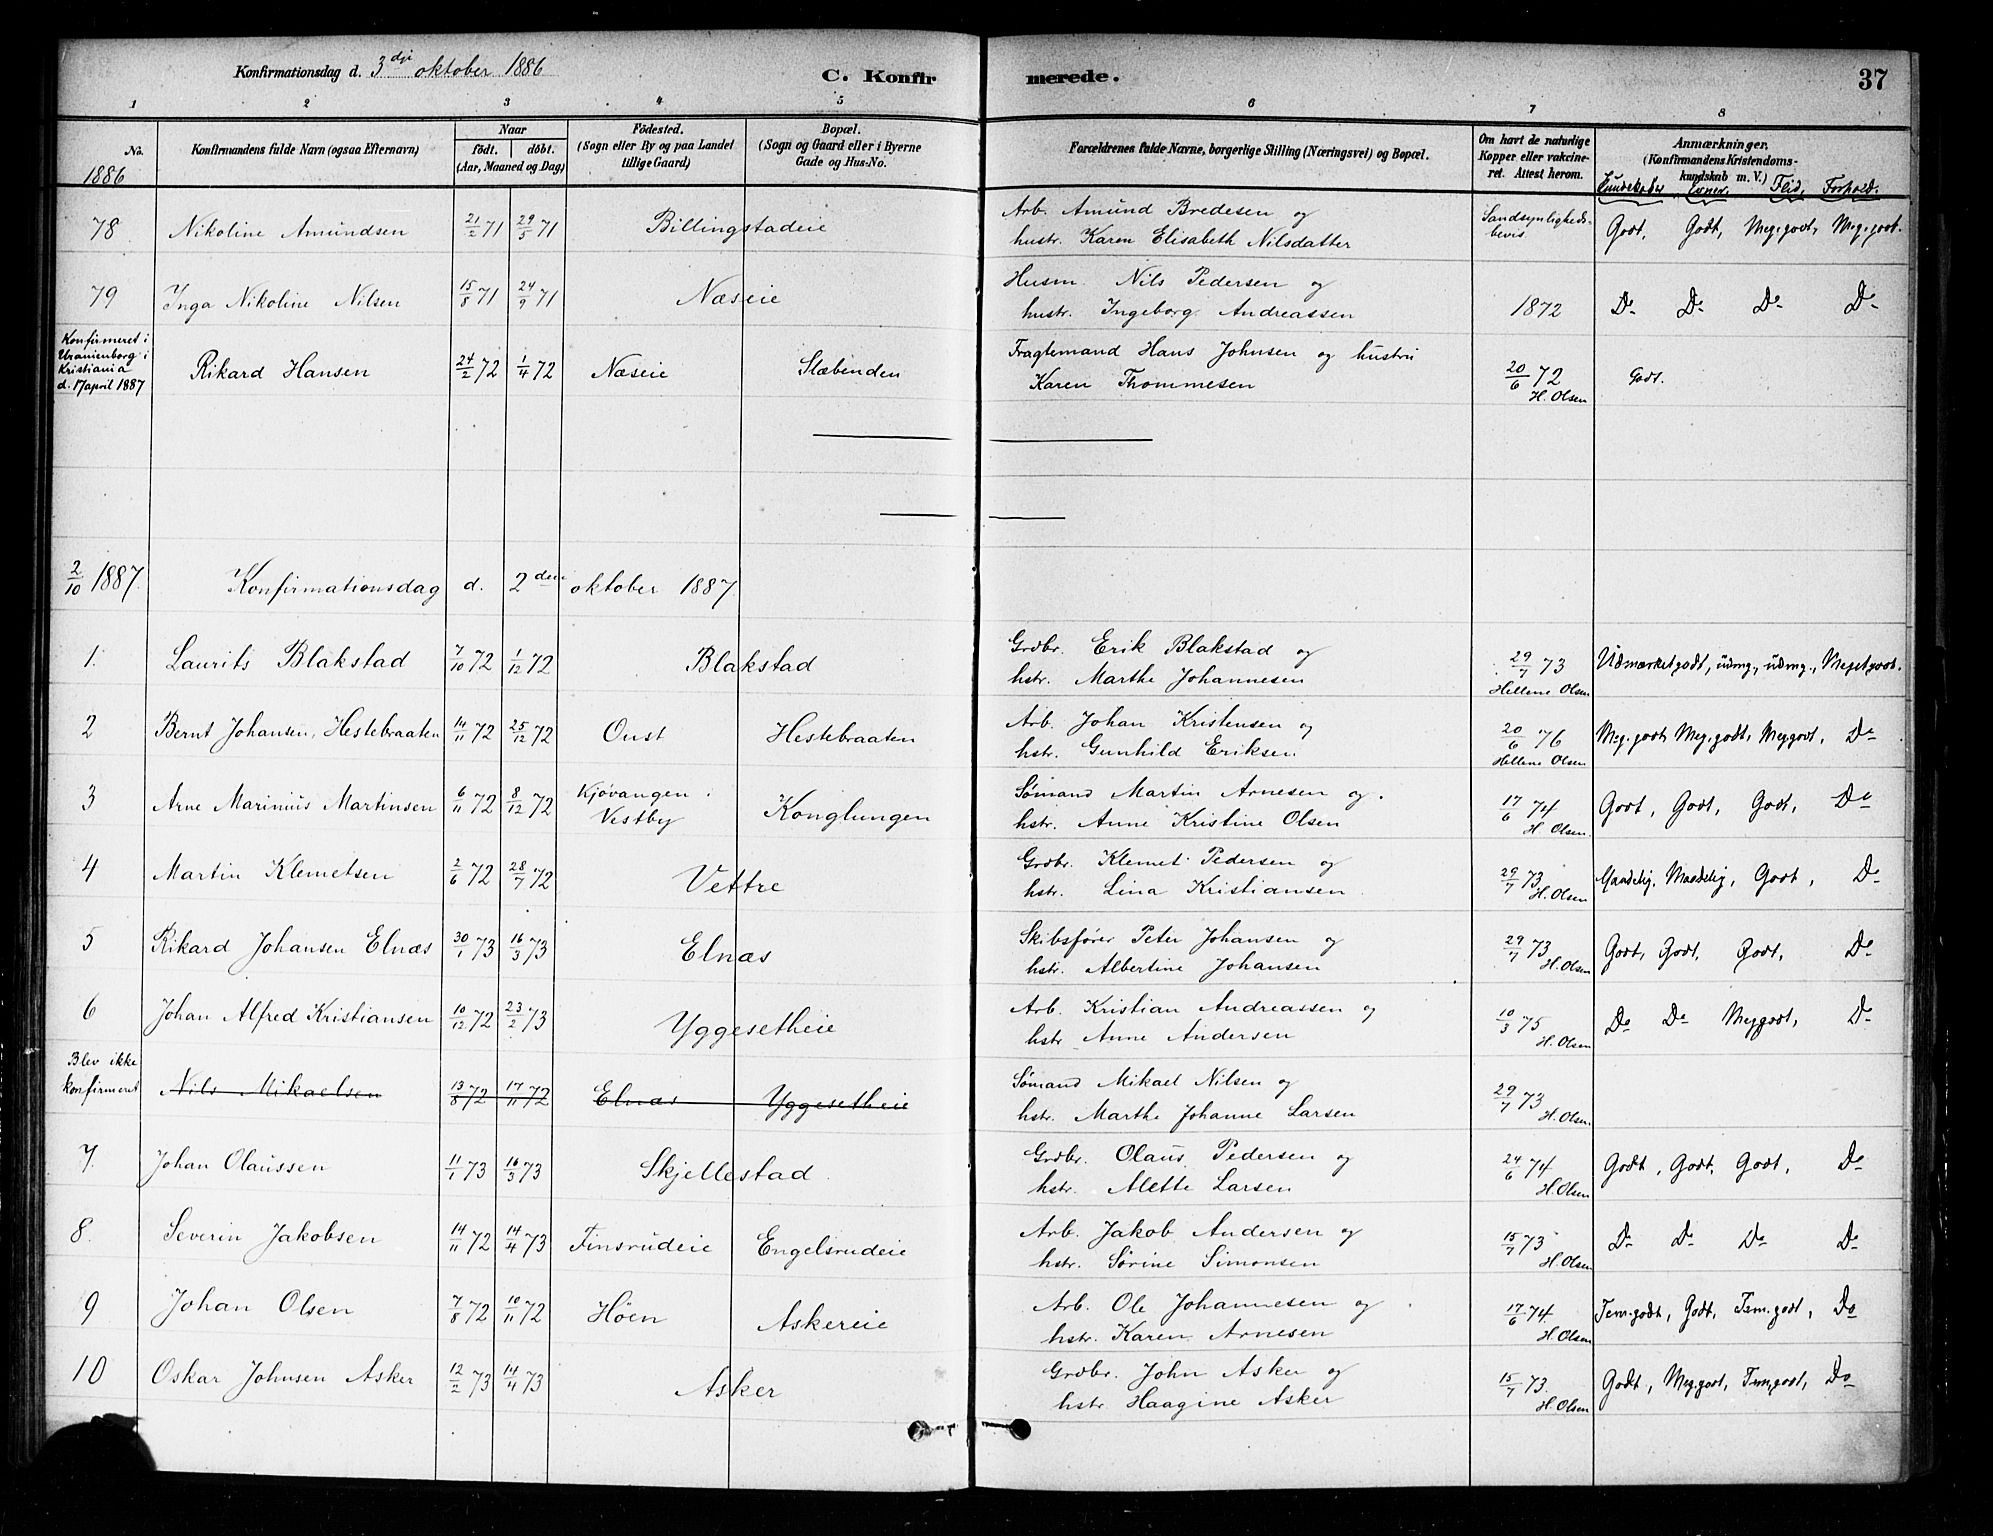 Konfirmationsdag d. 3dje oktober 1886 C. Konfirmerede. 37
1 2 3 4 5 6 7 8
No. 1886
Konfirmandens fulde Navn (ogsaa Efternavn)
Naar
født. døbt.
(Aar, Maaned og Dag)
Fødested.
(Sogn eller By og paa Landet
tillige Gaard)
Bopæl.
(Sogn og Gaard eller i Byerne
Gade og Hus-No.
Forældrenes fulde Navne, borgerlige Stilling (Næringsvei) og Bopæl.
Om havt de naturlige
Kopper eller vakcine-
ret. Attest herom.
Anmærkninger.
(Konfirmandens Kristendoms-
kundskab m. V.)
Kundskaber Evner, Flid, Forhold.
78 Nikoline Amundsen 21/2 71 29/5 71 Billingstadeie Arb. Amund Bredesen og Sandsynligheds-
hustr. Karen Elisabeth Nilsdatter bevis. Godt, Godt, Meg. godt, Meg. godt.
79 Inga Nikoline Nilsen 15/8 71 24/9 71 Næseie Husm. Nils Pedersen og
hustr. Ingeborg Andreassen 1872 Do Do Do Do
Konfirmeret i
Uranienborg i
Kristiania
d. 17 april 1887
Rikard Hansen 24/2 72 1/4 72 Næseie Slæbenden Fragtemand Hans Johnsen og hustru
Karen Thommesen 20/6 72 Godt.
H. Olsen
2/10 1887. Konfirmationsdag d. 2den oktober 1887.
1. Laurits Blakstad 7/10 72 1/12 72 Blakstad Grdbr. Erik Blakstad og
hstr. Marthe Johannesen 29/7 73 Udmærket godt, udmg., udmg., Meget godt.
Hellene Olsen
2 Bernt Johansen, Hestebraaten 14/11 72 25/12 72 Oust Hestebraaten Arb. Johan Kristensen og
hstr. Gunhild Eriksen 20/6 76 Meg. godt, Meg. godt, Meg godt, Do
Hellene Olsen
3 Arne Marinius Martinsen 6/11 72 8/12 72 Kjøvangen i
Vestby Konglungen Sømand Martin Arnesen og
hstr. Anne Kristine Olsen 17/6 74 Godt, Godt, Godt, Do
H. Olsen.
4 Martin Klemetsen 2/6 72 28/7 72 Vettre Grdbr. Klemet Pedersen og
hstr. Lina Kristiansen 29/7 73 Maadelig, Maadelig, Godt, Do
H. Olsen
5 Rikard Johansen Elnæs 30/1 73 16/3 73 Elnæs Skibsfører Peter Johansen og
hstr. Albertine Johansen 29/7 73 Godt, Godt, Godt, Do
H. Olsen
6 Johan Alfred Kristiansen 10/12 72 23/2 73 Yggesetheie Arb. Kristian Andreassen og
hstr Anne Andersen 10/3 75 Do Do Meg godt, Do
H. Olsen
Blev ikke
konfirmeret Nils Mikaelsen 13/8 72 17/11 72 Elnæs Yggesetheie Sømand Mikael Nilsen og
hstr. Marthe Johanne Larsen 29/7 73
H. Olsen
7. Johan Olaussen 11/1 73 16/3 73 Skjellestad Grdbr. Olaus Pedersen og
hstr. Alette Larsen 24/6 74 Godt, Godt, Godt, Do
H. Olsen
8. Severin Jakobsen 14/11 72 14/4 73 Finsrudeie Engelsrudeie Arb. Jakob Andersen og
hstr. Sørine Simonsen 15/7 73 Do Do Do Do
H. Olsen
9 Johan Olsen 7/8 72 10/11 72 Høen Askereie Arb. Ole Johannesen og
hstr. Karen Arnesen 17/6 74 Tem. godt, Godt, Tem. godt, Do
H. Olsen
10 Oskar Johnsen Asker 12/2 73 14/4 73 Asker Grdbr. John Asker og
hstr. Haagine Asker 15/7 73. Godt, Meg. godt, Tem. godt, Do
H. Olsen